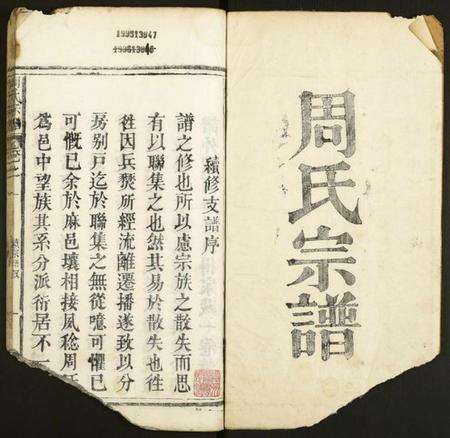 周氏宗譜
199513947
續修支譜序
譜之修也所以慮宗族之散失而思
有以聯集之也然其易於散失也徃
徃因兵燹所經流離遷播遂致以分
房别戸迄於聯集之無從噫可懼已
可慨已余於麻邑壤相接風稔周
爲邑中望族其系分派衍居不一